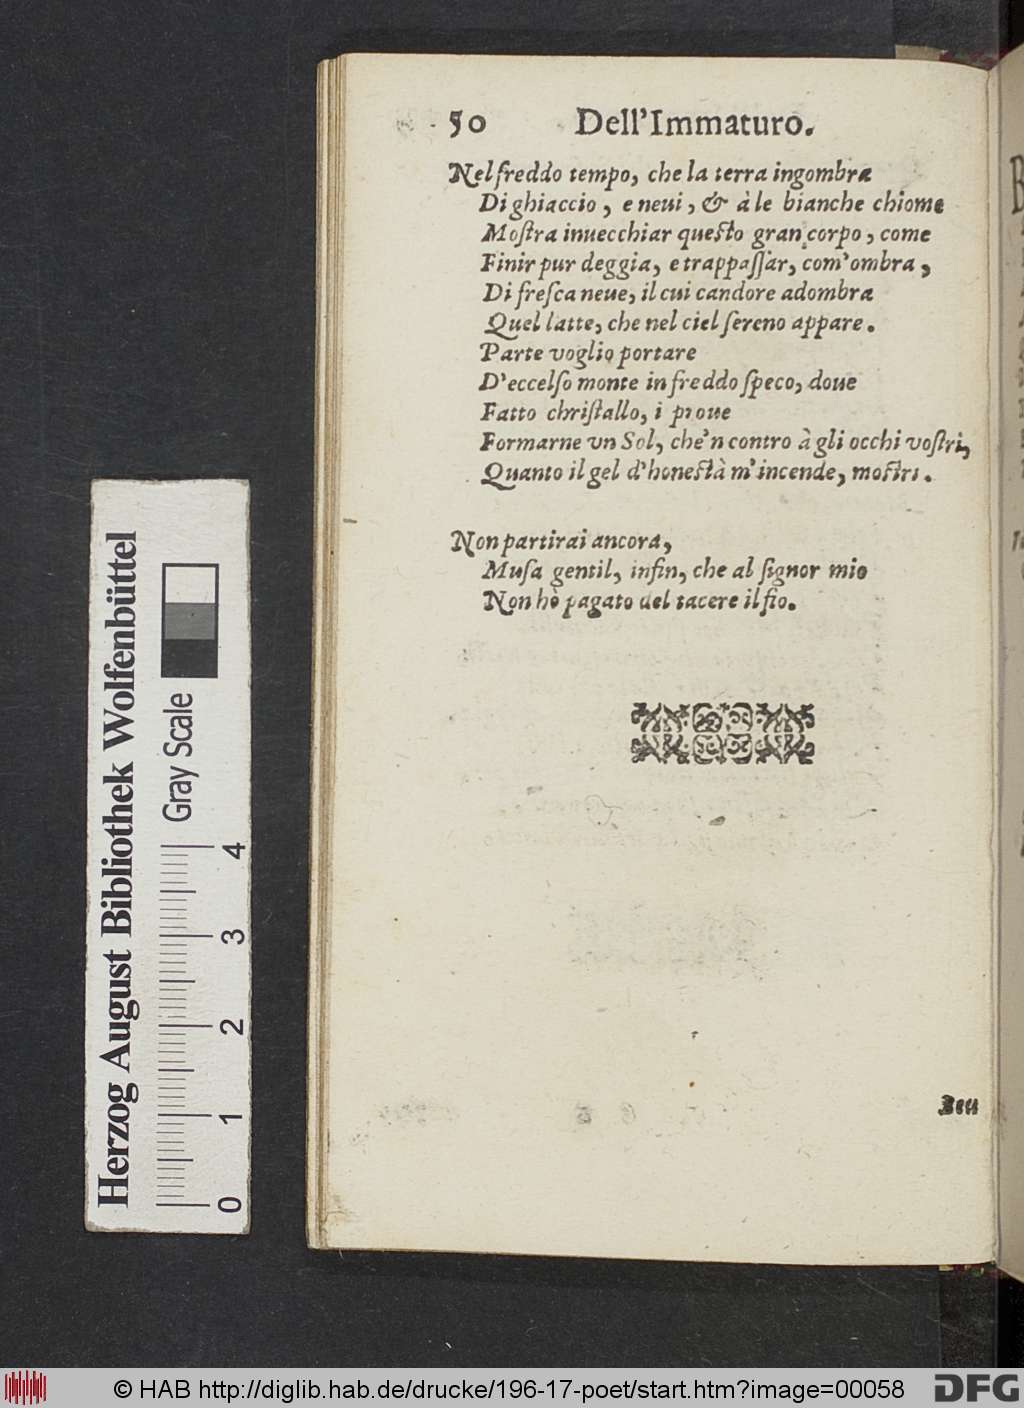 50 Dell'Immaturo.
Nel freddo tempo, che la terra ingombra
Di ghiaccio, e neui, & à le bianche chiome
Moſtra inuecchiar queſto gran corpo, come
Finir pur deggia, e trappaſſar, com'ombra,
Di freſca neue, il cui candore adombra
Quel latte, che nel ciel ſereno appare.
Parte voglio portare
D'eccelſo monte in freddo ſpeco, doue
Fatto chriſtallo, i proue
Formarne vn Sol, che'n contro à gli occhi voſtri,
Quanto il gel d'honeſtà m'incende, moſtri.
Non partirai ancora,
Muſa gentil, infin, che al ſignor mio
Non hò pagato del tacere il fio.
Ben
Herzog August Bibliothek Wolfenbüttel
Gray Scale
0 1 2 3 4
© HAB http://diglib.hab.de/drucke/196-17-poet/start.htm?image=00058
DFG